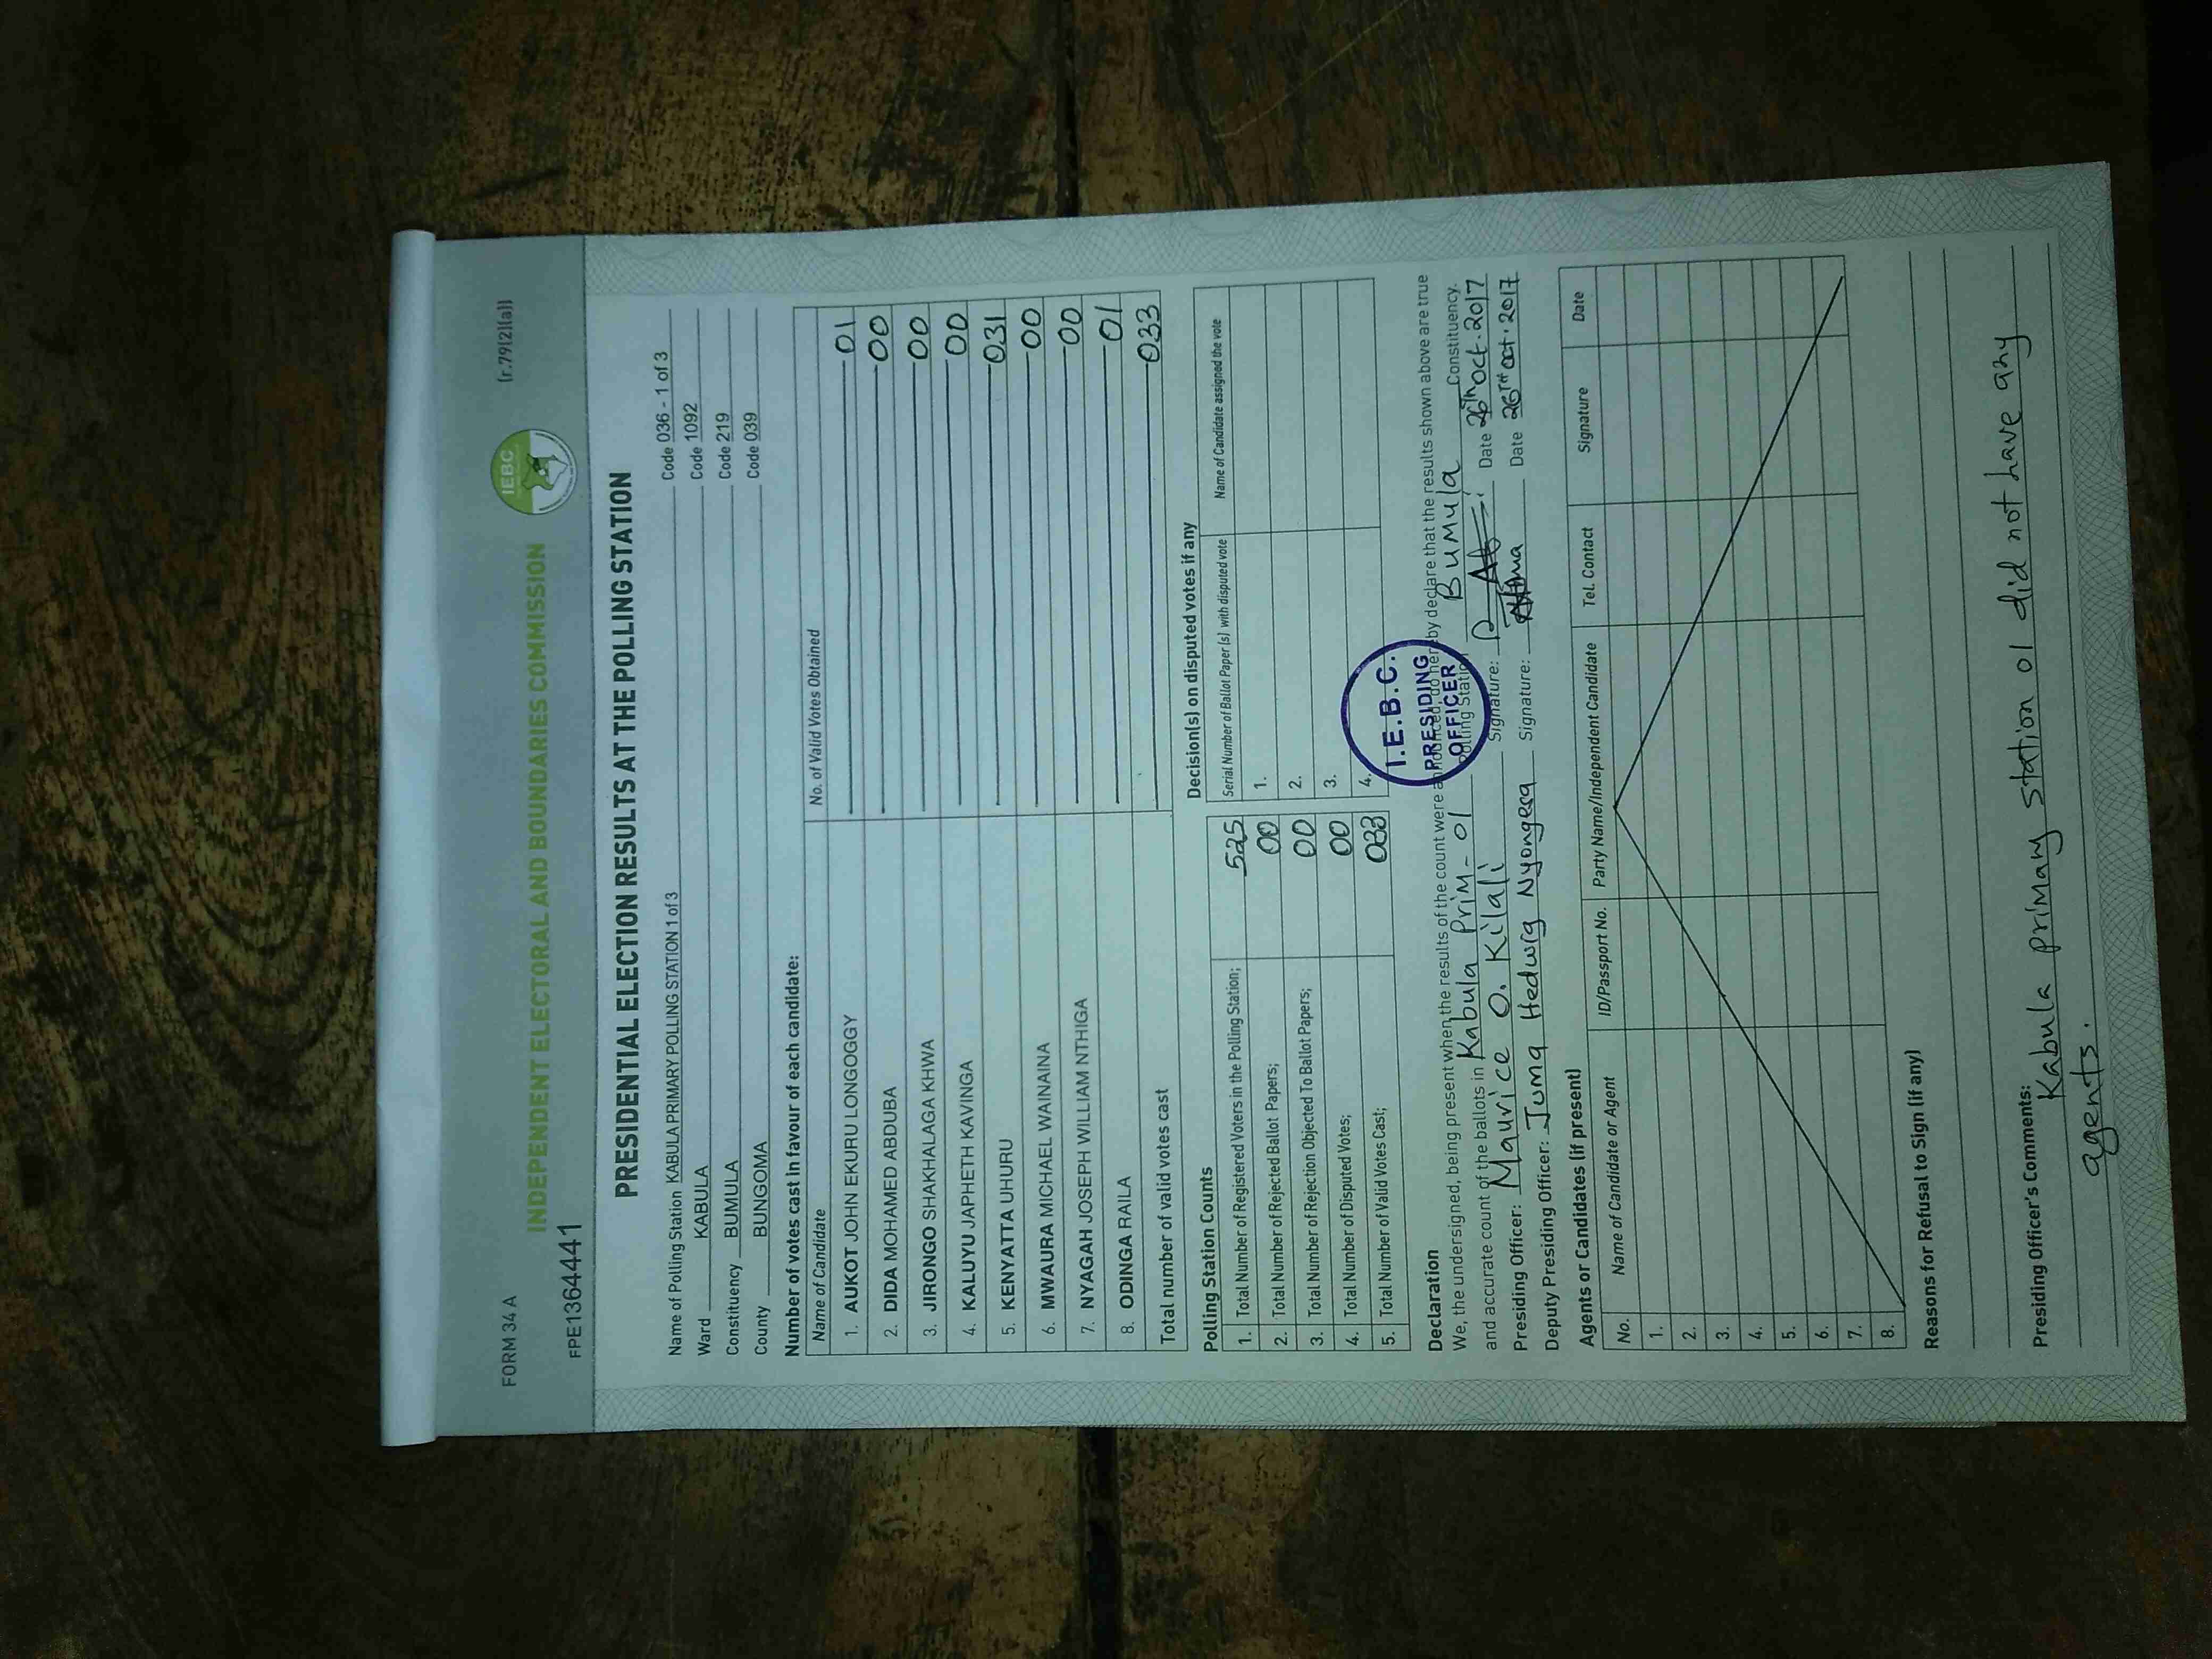 FORM 34 A
(r.79(2)(a))
IEBC
INDEPENDENT ELECTORAL AND BOUNDARIES COMMISSION
FPE1364441
PRESIDENTIAL ELECTION RESULTS AT THE POLLING STATION
Name of Polling Station KABULA PRIMARY POLLING STATION 1 of 3 Code 036 - 1 of 3
Ward KABULA Code 1092
Constituency BUMULA Code 219
County BUNGOMA Code 039
Number of votes cast in favour of each candidate:
Name of Candidate No. of Valid Votes Obtained
1. AUKOT JOHN EKURU LONGOGGY 01
2. DIDA MOHAMED ABDUBA 00
3. JIRONGO SHAKHALAGA KHWA 00
4. KALUYU JAPHETH KAVINGA 00
5. KENYATTA UHURU 031
6. MWAURA MICHAEL WAINAINA 00
7. NYAGAH JOSEPH WILLIAM NTHIGA 00
8. ODINGA RAILA 01
Total number of valid votes cast 033
Polling Station Counts
1. Total Number of Registered Voters in the Polling Station; 525
2. Total Number of Rejected Ballot Papers; 00
3. Total Number of Rejection Objected To Ballot Papers; 00
4. Total Number of Disputed Votes; 00
5. Total Number of Valid Votes Cast; 033
Decision(s) on disputed votes if any
Serial Number of Ballot Paper (s) with disputed vote Name of Candidate assigned the vote
1.
2.
3.
4.
I.E.B.C.
PRESIDING
OFFICER
Declaration
We, the undersigned, being present when the results of the count were announced, do hereby declare that the results shown above are true
and accurate count of the ballots in Kabula Prim - 01 Polling Station Bumula Constituency.
Presiding Officer: Maurice O. Kilali Signature: Date 26th Oct. 2017
Deputy Presiding Officer: Juma Hedwig Nyongesa Signature: Date 26TH Oct. 2017
Agents or Candidates (if present)
No. Name of Candidate or Agent ID/Passport No. Party Name/Independent Candidate Tel. Contact Signature Date
1.
2.
3.
4.
5.
6.
7.
8.
Reasons for Refusal to Sign (if any)
Presiding Officer's Comments:
Kabula primary station 01 did not have any
agents.